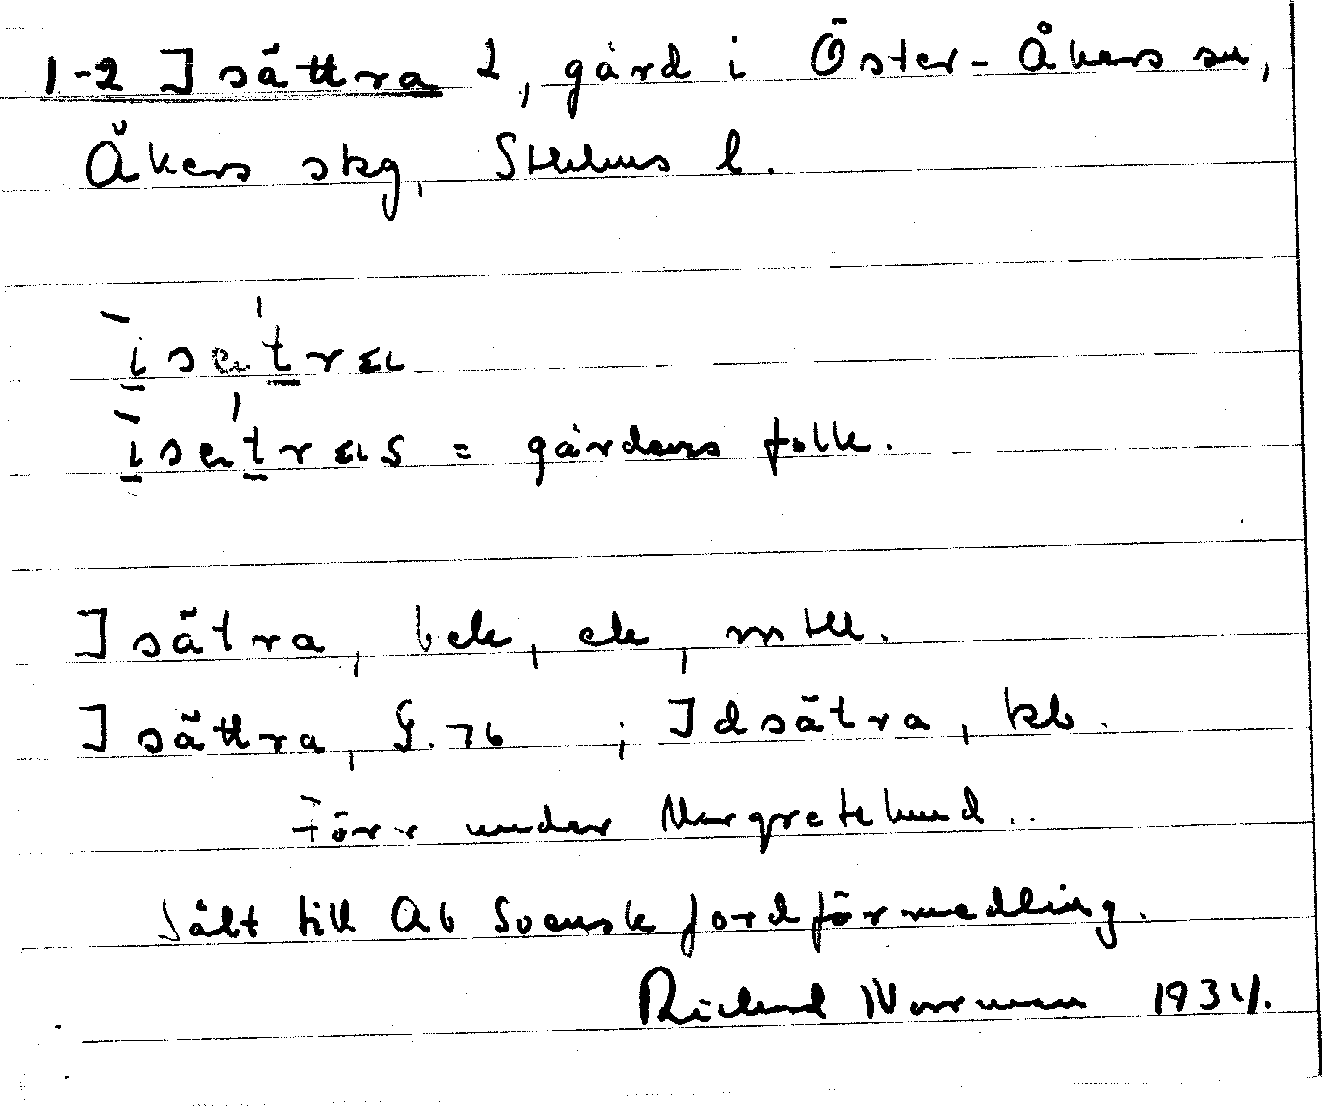 1-2 Isättra 2, gård i Öster-Åkers sn,
Åkers skg, Sthlms l.
isätra
isätras = gårdens folk.
Isätra, bek, ek, mtll.
Isättra, G. 76 ; Idsätra, kb.
Förr under Margretelund..
Sålt till Ab Svensk jordförmedling.
Richard Norrman 1934.